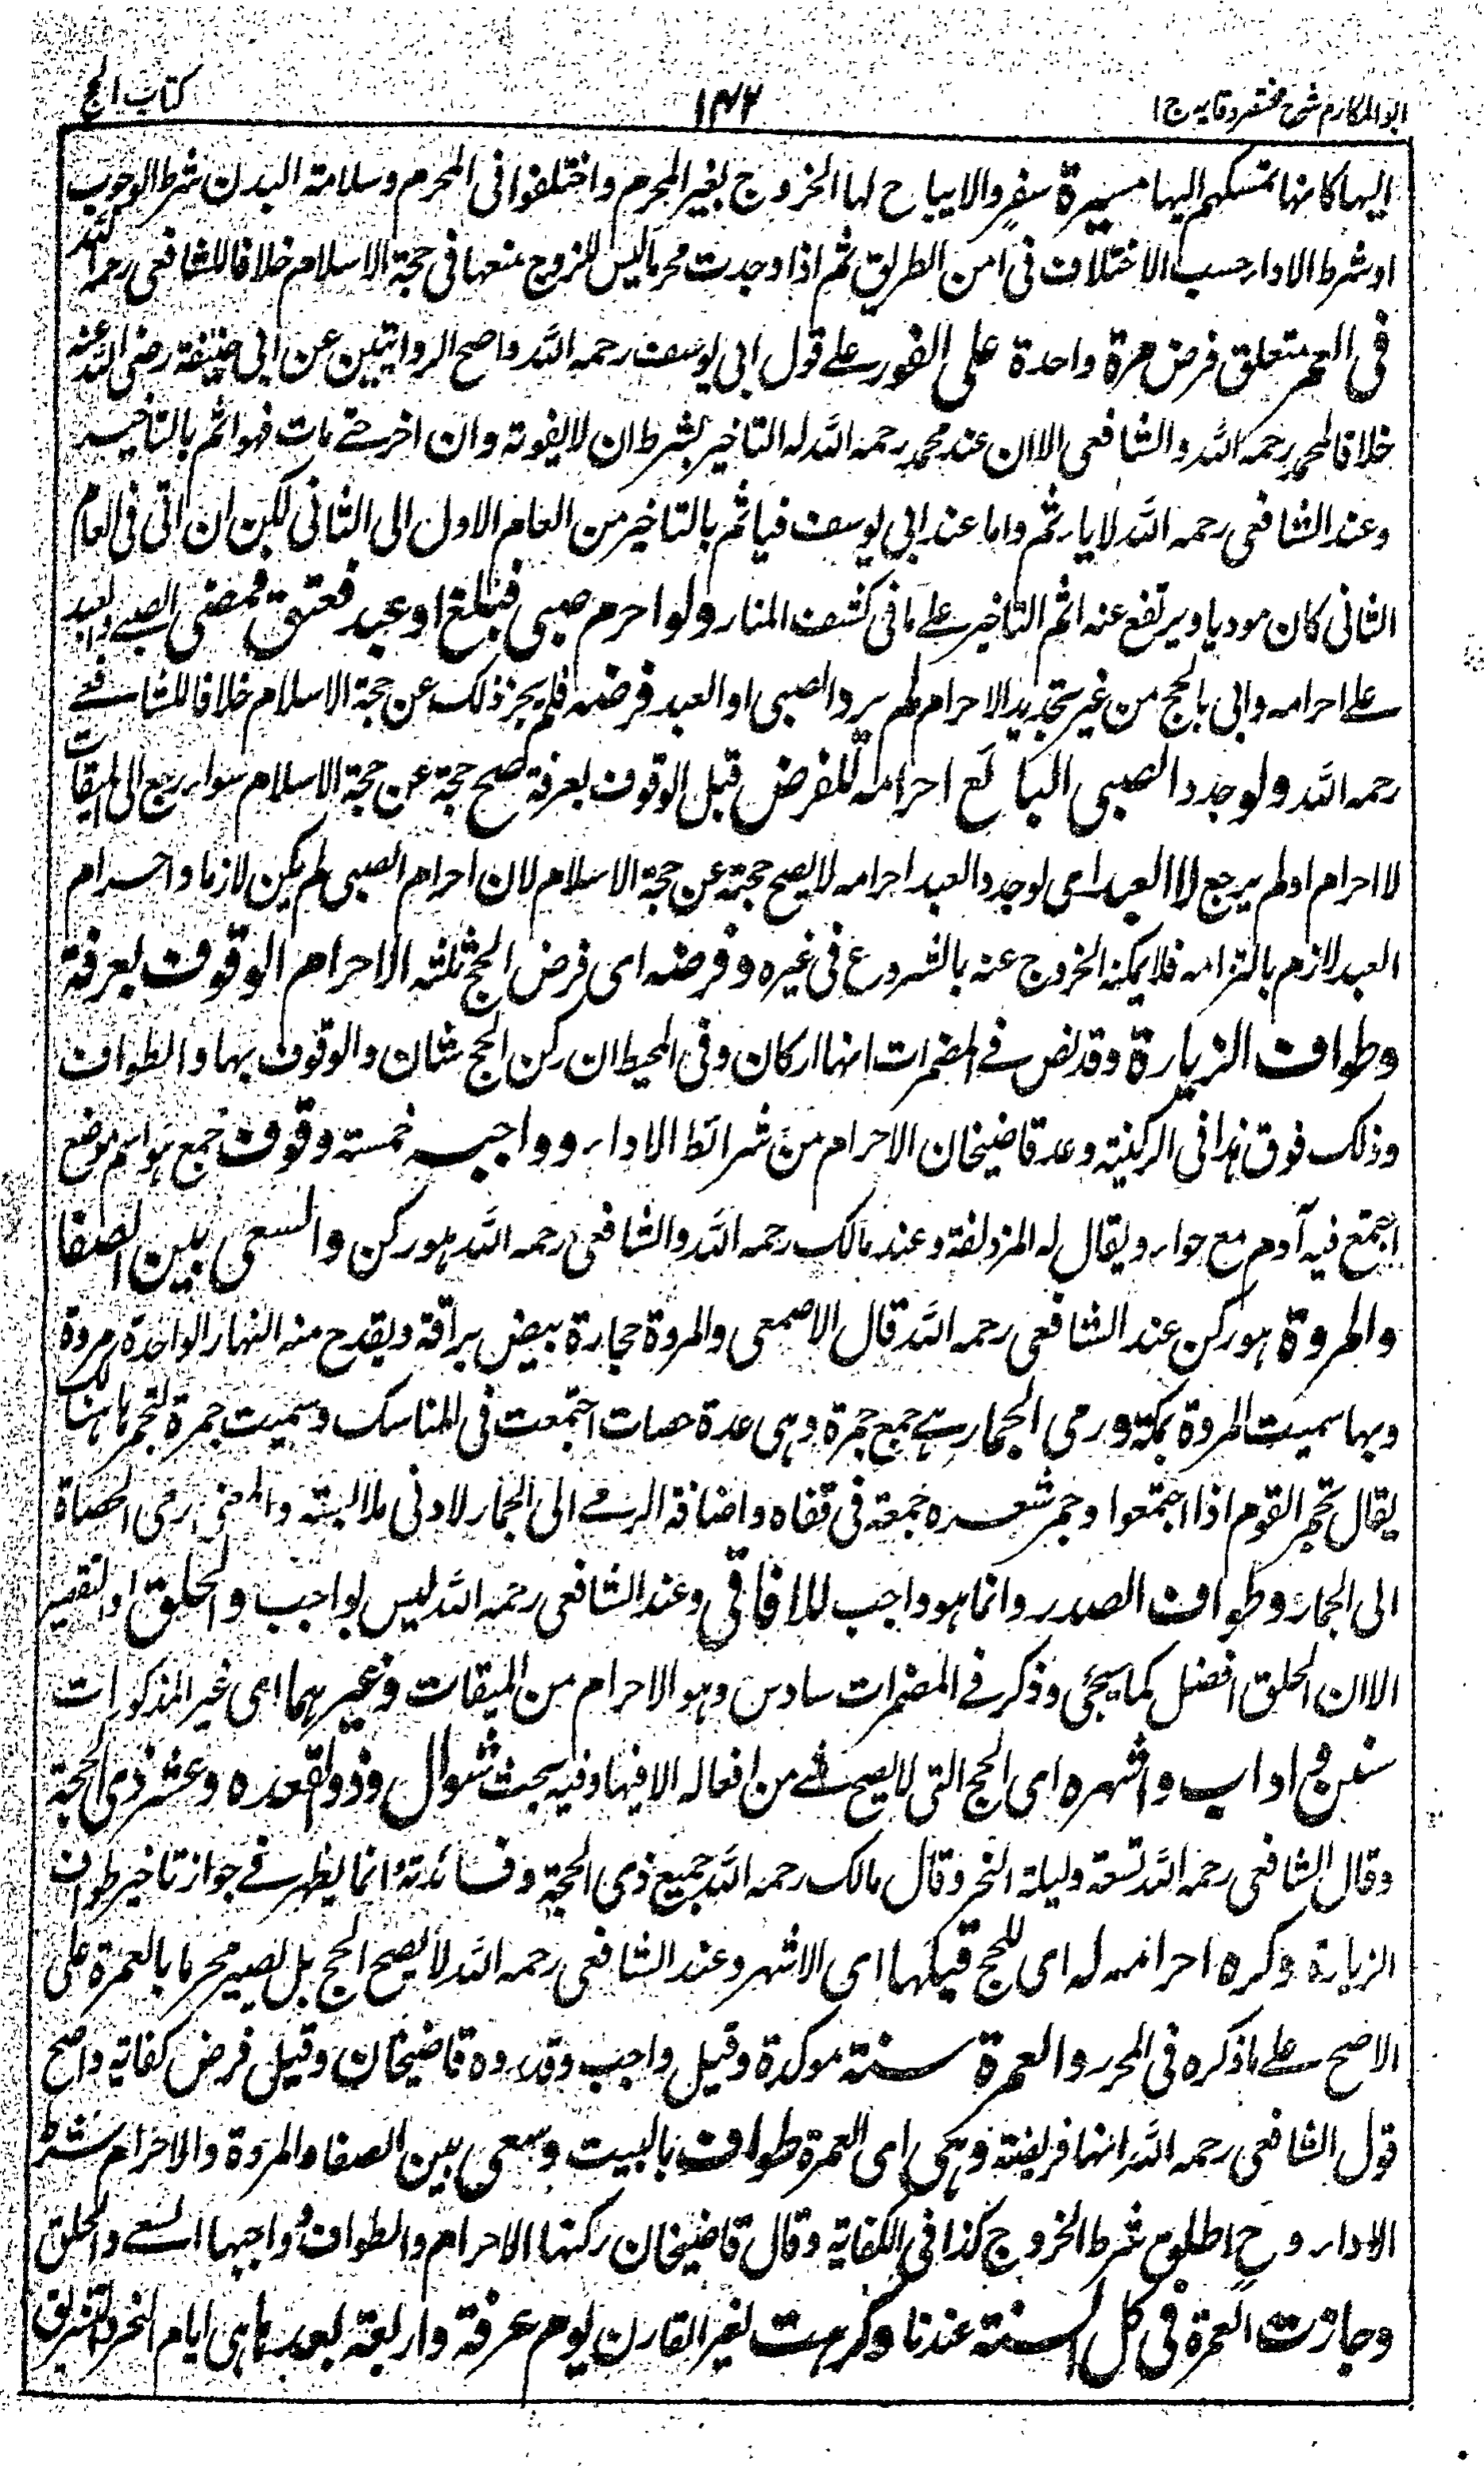 ابو المكارم شرح مختصر وقايه ج ا
١٤٢
كتاب الحج
اليها كانها تمسكهم اليها مسيرة سفر والا يباح لها الخروج بغير المحرم واختلفوا فى المحرم وسلامة البدن شرط الوجوب
او شرط الاداء حسب الاختلاف فى امن الطريق ثم اذا وجدت محرما ليس للزوج منعها فى حجة الاسلام خلافا للشافعى رحمه الله
فى العمر متعلق فرض مرة واحدة على الفور على قول ابى يوسف رحمه الله واصح الروايتين عن ابى حنيفة رضى الله عنه
خلافا لمحمد رحمه الله والشافعى الا ان عند محمد رحمه الله له التاخير بشرط ان لا يفوته وان اخر حتى مات فهو اثم بالتاخير
وعند الشافعى رحمه الله لا ياثم واما عند ابى يوسف فياثم بالتاخير من العام الاول الى الثانى لكن ان اتى فى العام
الثانى كان موديا ويرتفع عنه اثم التاخير على ما فى كشف المنار ولو احرم صبى فبلغ او عبد فعتق فمضى الصبى والعبد
على احرامه واتى بالحج من غير تجديد الاحرام لم يرد الصبى او العبد فرضه فلم يجز ذلك عن حجة الاسلام خلافا للشافعى
رحمه الله ولو جدد الصبى البالغ احرامه للفرض قبل الوقوف بعرفة صح حجة عن حجة الاسلام سواء رجع الى الميقات
لا احرام او لم يرجع لا العبد اى لو جدد العبد احرامه لا يصح حجته عن حجة الاسلام لان احرام الصبى لم يكن لازما واحرام
العبد لازم بالتزامه فلا يمكنه الخروج عنه بالشروع فى غيره وفرضه اى فرض الحج ثلثة الاحرام الوقوف بعرفة
وطواف الزيارة وقد نص فى المضمرات انها اركان وفى المحيط ان ركن الحج شان والوقوف بها والطواف
وذلك فوق هذا فى الركنية وعد قاضيخان الاحرام من شرائط الاداء وواجبه خمسة وقوف جمع هو اسم موضع
اجتمع فيه آدم مع حواء ويقال له المزدلفة وعند مالك رحمه الله والشافعى رحمه الله هو ركن والسعى بين الصفا
والمروة هو ركن عند الشافعى رحمه الله قال الاصمعى والمروة حجارة بيض براقة ويقدح منه النهار الواحدة مروة
وبها سميت المروة بمكة ورمى الجمار هى جمع جمرة وهى عدة حصات اجتمعت فى المناسك وسميت جمرة لتجمرها هنالك
يقال تجمر القوم اذا اجتمعوا وجمر شعره جمعه فى قفاه واضافة الرمى الى الجمار لادنى ملابسة والمعنى رمى الحصاة
الى الجمار وطواف الصدر وانما هو واجب للافاقى وعند الشافعى رحمه الله ليس بواجب والحلق او التقصير
الا ان الحلق افضل كما يجئ وذكر فى المضمرات سادس وهو الاحرام من الميقات وغيرهما اى غير المذكورات
سنن واداب واشهره اى الحج التى لا يصح شئ من افعاله الا فيها وفيه بحث شوال وذو القعده وعشر ذى الحجة
وقال الشافعى رحمه الله تسعة وليلة النحر وقال مالك رحمه الله جميع ذى الحجة وفائدته انما يظهر فى جواز تاخير طواف
الزيارة وكره احرامه له اى للحج قبلها اى الاشهر وعند الشافعى رحمه الله لا يصح الحج بل يصير محرما بالعمرة على
الاصح على ما ذكره فى المحرر والعمرة سنة موكدة وقيل واجب وقدروه قاضيخان وقيل فرض كفاية واصح
قول الشافعى رحمه الله انها فريضة وهى اى العمرة طواف بالبيت وسعى بين الصفا والمروة والاحرام شرط
الاداء و ح اطلبوه شرط الخروج كذا فى الكفاية وقال قاضيخان ركنها الاحرام والطواف وواجبها السعى والحلق
وجازت العمرة فى كل السنة عندنا وكرهت لغير القارن يوم عرفة واربعة بعدها هى ايام النحر والتشريق